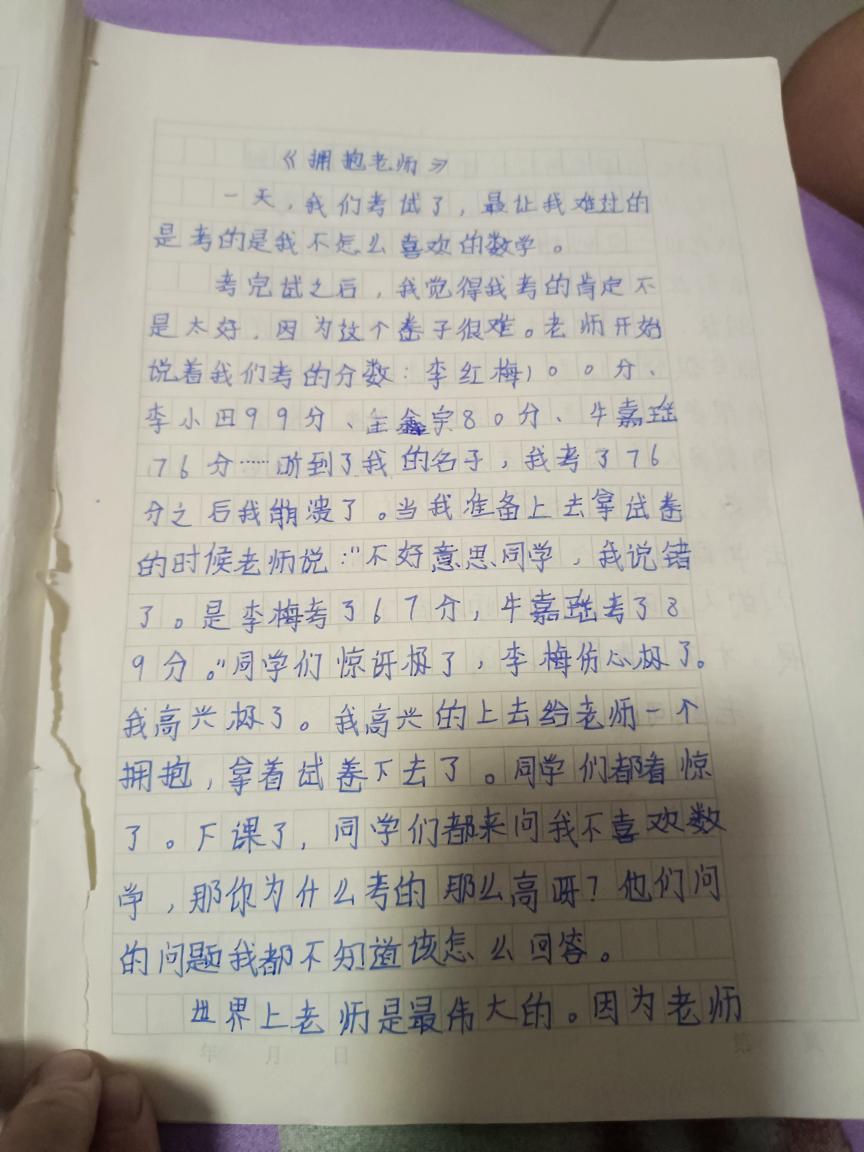 《拥抱老师》
一天，我们考试了，最让我难过的
是考的是我不怎么喜欢的数学。
考完试之后，我觉得我考的肯定不
是太好，因为这个卷子很难。老师开始
说着我们考的分数：李红梅100分、
李小田99分、王鑫宇80分、牛嘉瑶
76分……听到了我的名子，我考了76
分之后我崩溃了。当我准备上去拿试卷
的时候老师说："不好意思同学，我说错
了。是李梅考了67分，牛嘉瑶考了8
9分。"同学们惊讶极了，李梅伤心极了。
我高兴极了。我高兴的上去给老师一个
拥抱，拿着试卷下去了。同学们都看惊
了。下课了，同学们都来问我不喜欢数
学，那你为什么考的那么高呀？他们问
的问题我都不知道该怎么回答。
世界上老师是最伟大的。因为老师
年 月 日
第 页